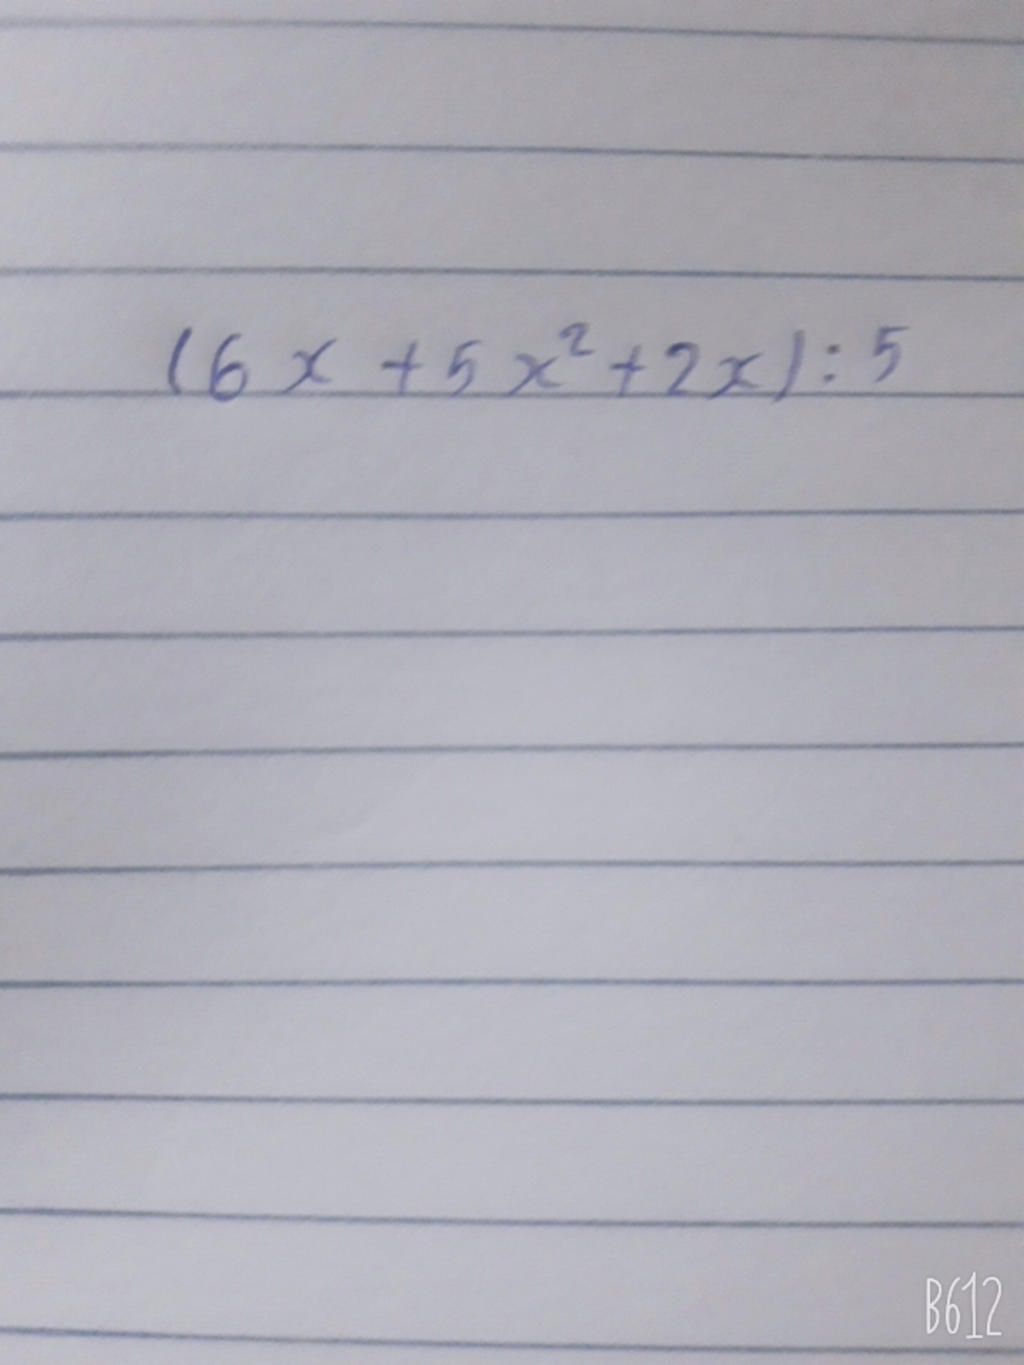 (6x + 5x² + 2x) : 5
B612